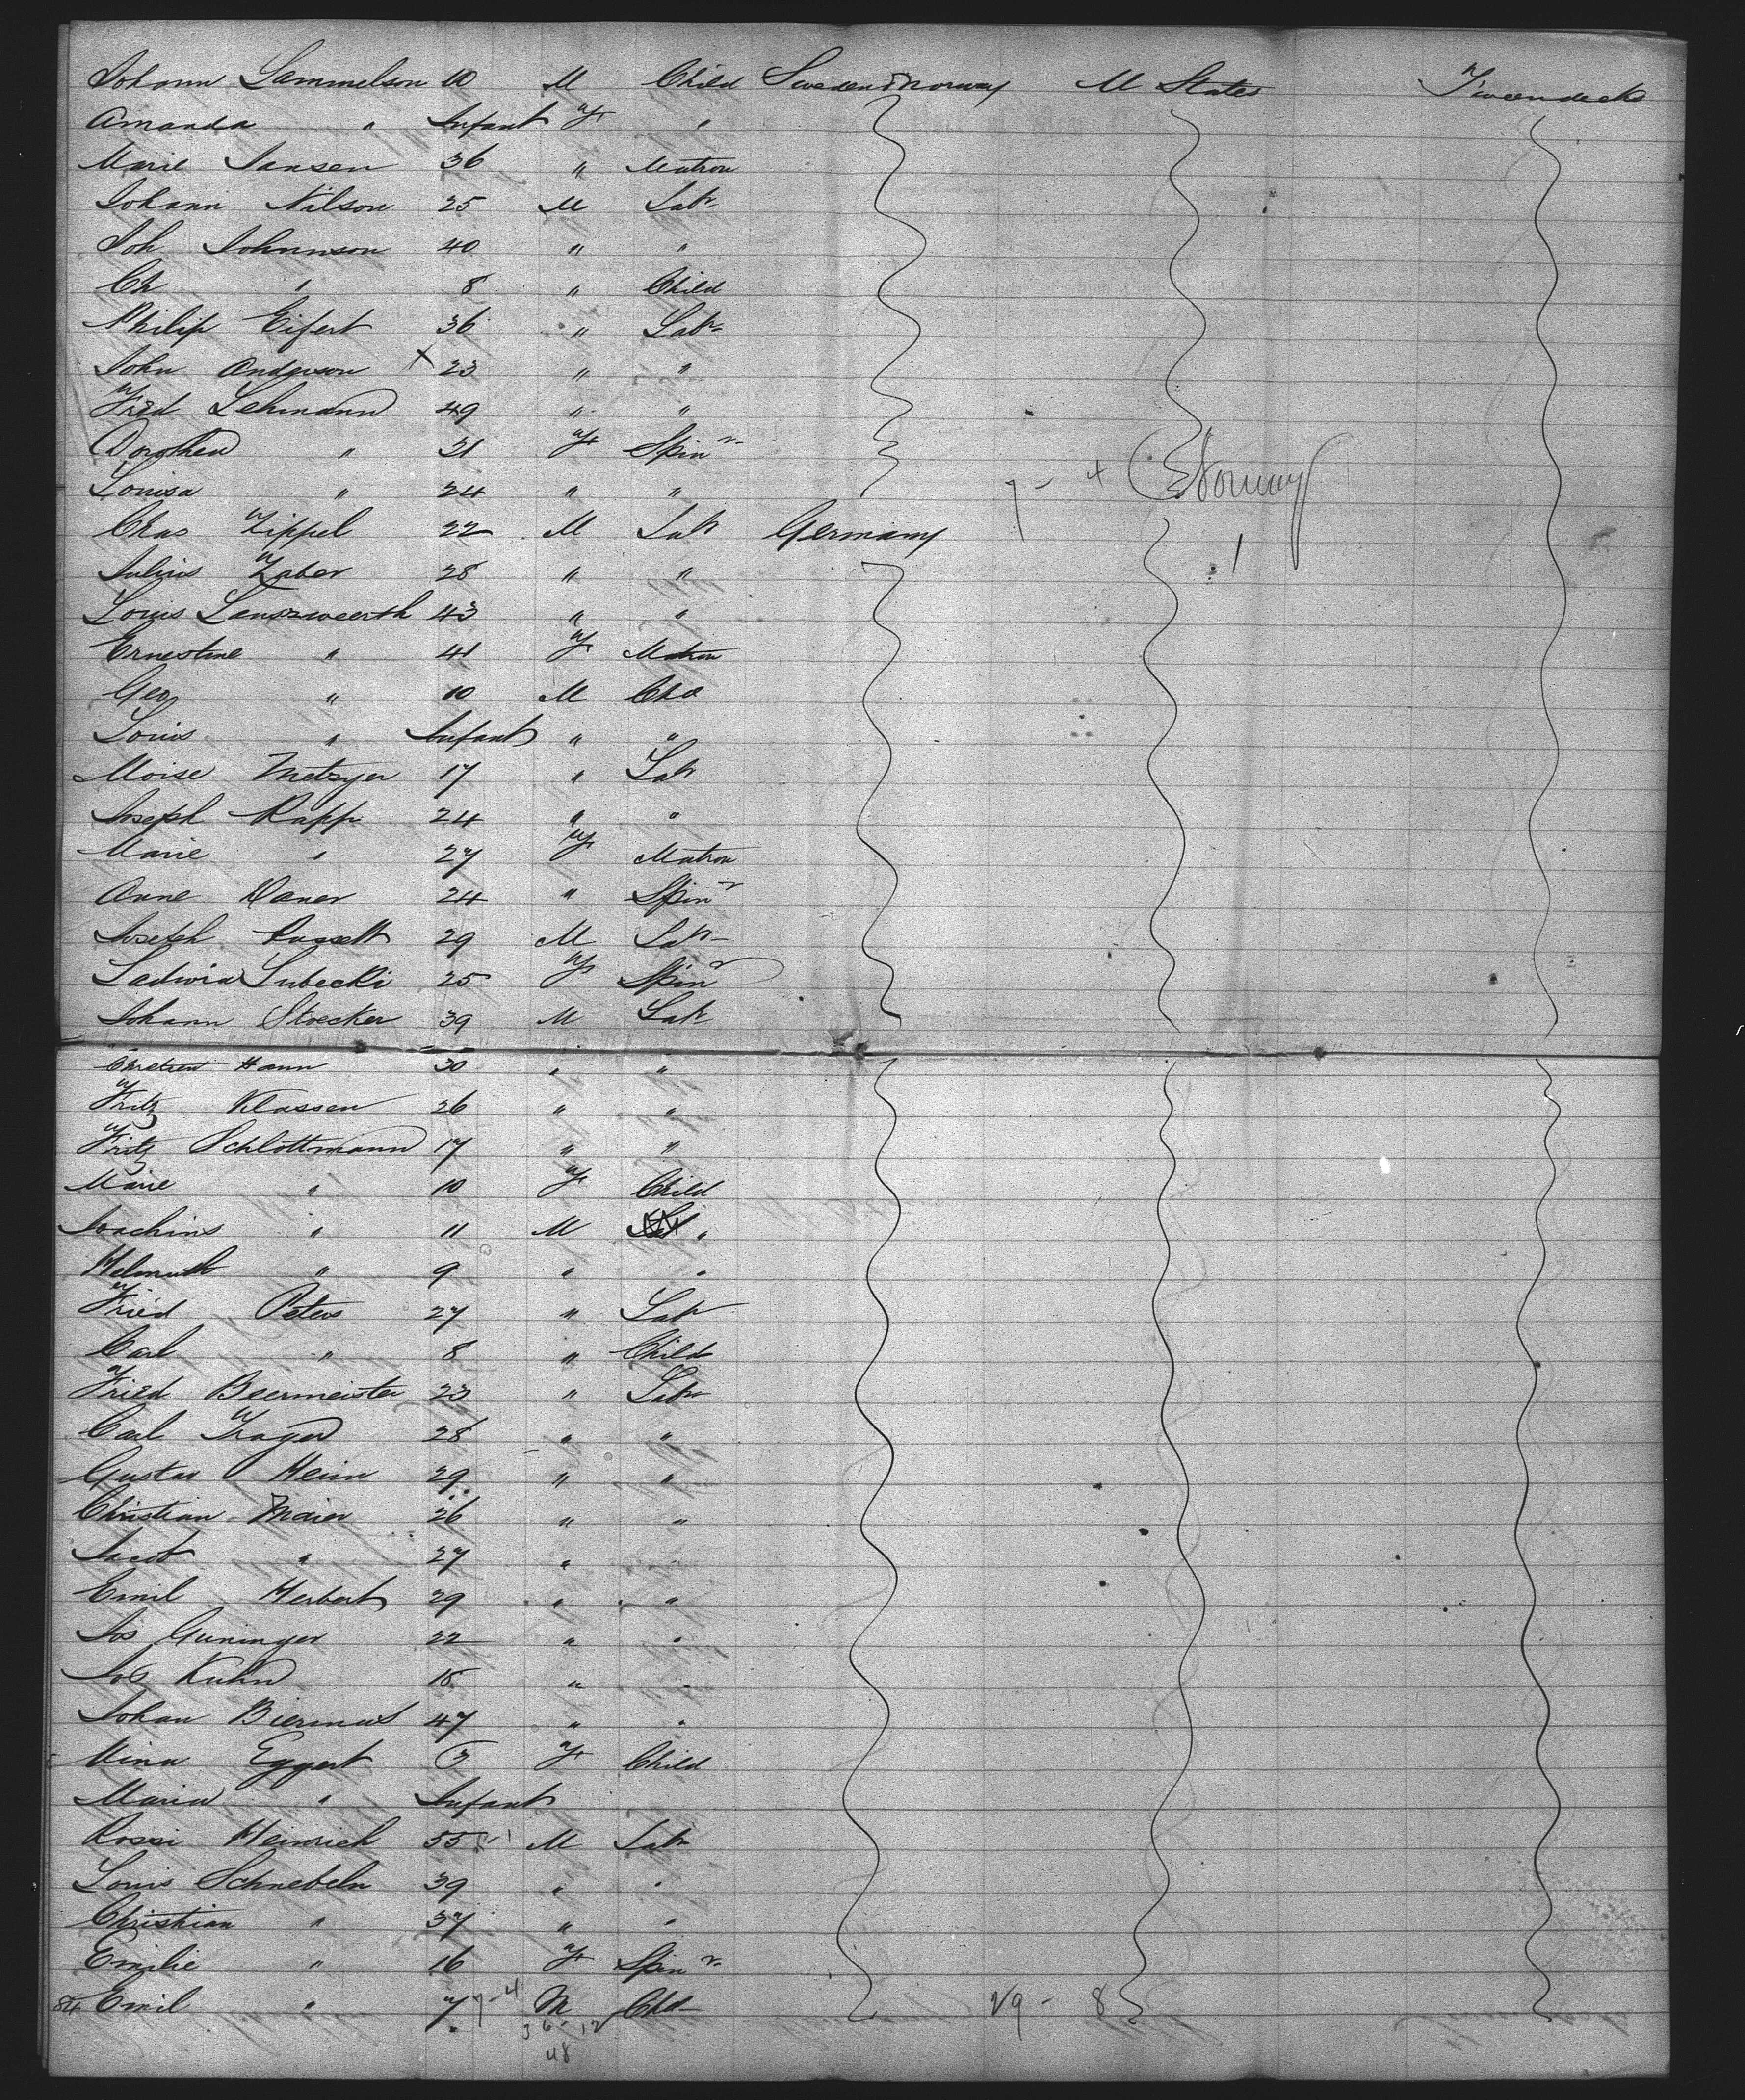 Johann Sammelson 10 M Child Sweden & Norway U States Tweendecks
Amanda " Infant F "
Marie Jansen 36 " Matron
Johann Nilson 25 M Labr
Joh Johnnson 40 " "
Ch " 8 " Child
Philip Eifert 36 " Labr
John Anderson X 23 " "
Fried Lehmann 49 " "
Dorothea " 21 F Spinr
Louisa " 24 " " 7 - 4 Norway
Chas Zippel 22 M Labr Germany 1
Julius Zaber 28 " "
Louis 43 " "
Ernestine " 41 F Matron
Geo " 10 M Chd
Louis " Infant " "
Moise Metzger 17 " Labr
Joseph Rapp 24 " "
Marie " 27 F Matron
Anne Daner 24 " Spinr
Joseph 29 M Labr
Ladwia Lubecki 25 F Spinr
Johann Stoecker 39 M Labr
Hann 30 " "
Fritz Klassen 26 " "
Fritz Schlottmann 17 " "
Marie " 10 F Child
Joachim " 11 M "
Helmuth " 9 " "
Fried Peters 27 " Labr
Carl " 8 " Child
Fried Beermeister 23 " Labr
Carl 28 " "
Gustav Heim 29 " "
Christian Maier 26 " "
Jacob " 27 "
Emil Herbert 29 " "
Jos Guninger 22 " "
Jos Kuhn 18 " "
Johan 47 " "
Mina Eggert 3 F Child
Maria " Infant
Rossi Heinrich 55 M Labr
Louis Schnebeln 39 " "
Christian " 37 " "
Emilie " 16 F Spinr
84 Emil " 7 7-4 M Chd 29 - 8
36-12
48